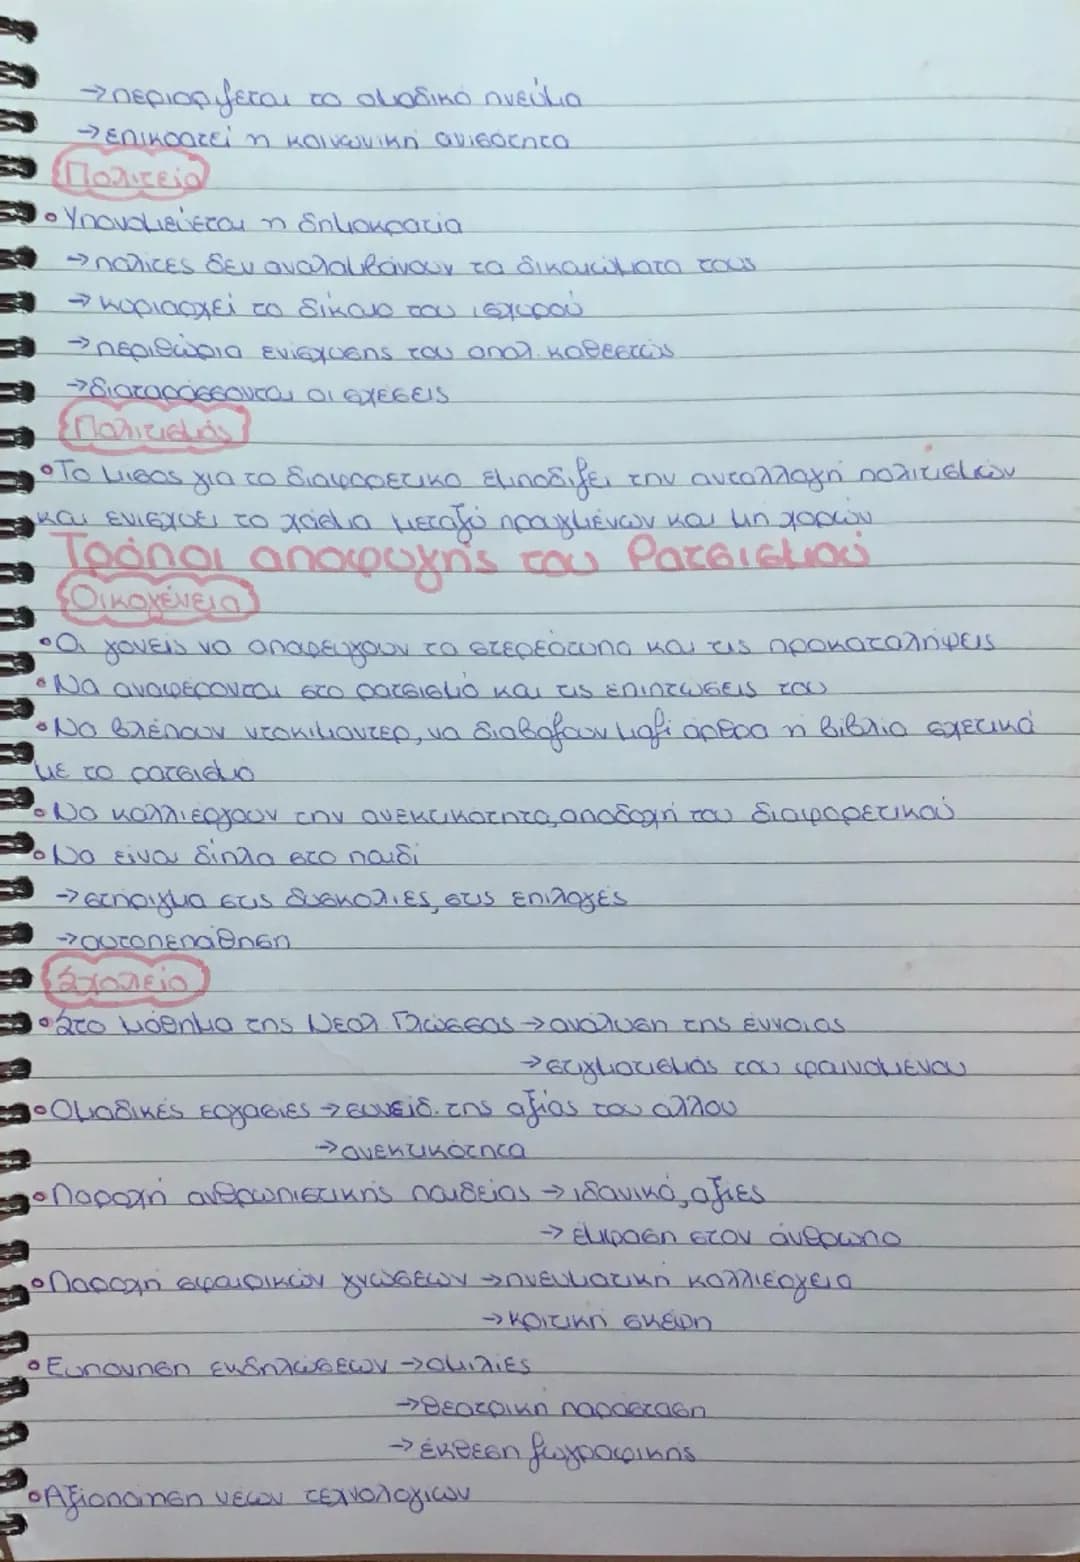 →περιορίζεται το ομαδικό πνεύμα
→επικρατεί η κοινωνική ανισότητα
Πολιτεία
• Υπονομεύεται η δημοκρατία
→πολίτες δεν αναλαμβάνουν τα δικαιώματα τους
→ κυριαρχεί το δίκαιο του ισχυρού
→περιθώρια ενίσχυσης του απολ. καθεστώς
→διαταράσσονται οι σχέσεις
Πολιτισμός
• Το μίσος για το διαφορετικό εμποδίζει την ανταλλαγή πολιτισμών
και ενισχύει το χάσμα μεταξύ προηγμένων και μη χωρών
Τρόποι αποφυγής του Ρατσισμού
Οικογένεια
• Οι γονείς να αποφεύγουν τα στερεότυπα και τις προκαταλήψεις
• Να αναφέρονται στο ρατσισμό και τις επιπτώσεις του
• Να βλέπουν ντοκιμαντέρ, να διαβάζουν μαζί άρθρα ή βιβλία σχετικά
με το ρατσισμό
• Να καλλιεργούν την ανεκτικότητα, αποδοχή του διαφορετικού
• Να είναι δίπλα στο παιδί
→ στήριγμα στις δυσκολίες, στις επιλογές
→αυτοπεποίθηση
Σχολείο
• Στο μάθημα της Νεολ. Γλώσσας → ανάλυση της έννοιας
→στιγματισμός του φαινομένου
• Ομαδικές εργασίες → συνειδ. της αξίας του άλλου
→ανεκτικότητα
• Παροχή ανθρωπιστικής παιδείας → ιδανικά, αξίες
→ έμφαση στον άνθρωπο
• Παροχή σφαιρικών γνώσεων →πνευματική καλλιέργεια
→κριτική σκέψη
• Εκπόνηση εκδηλώσεων →ομιλίες
→θεατρική παράσταση
→ έκθεση ζωγραφικής
• Αξιοποίηση νέων τεχνολογιών